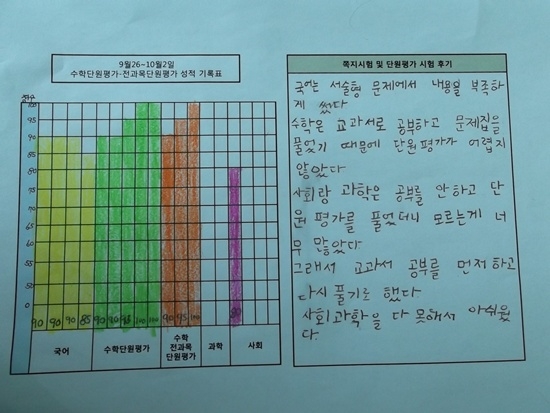 9월26~10월2일
수학단원평가·전과목단원평가 성적 기록표
점수
100
95
90
85
80
75
70
65
60
55
50
0
90 90 90 85 90 90 95 100 100 90 95 100 80
국어 수학단원평가 수학 전과목 단원평가 과학 사회
쪽지시험 및 단원평가 시험 후기
국어는 서술형 문제에서 내용을 부족하
게 썼다
수학은 교과서로 공부하고 문제집을
풀었기 때문에 단원평가가 어렵지
않았다
사회랑 과학은 공부를 안하고 단
원평가를 풀었더니 모르는게 너
무 많았다
그래서 교과서 공부를 먼저하고
다시 풀기로 했다
사회과학을 다 못해서 아쉬웠
다.